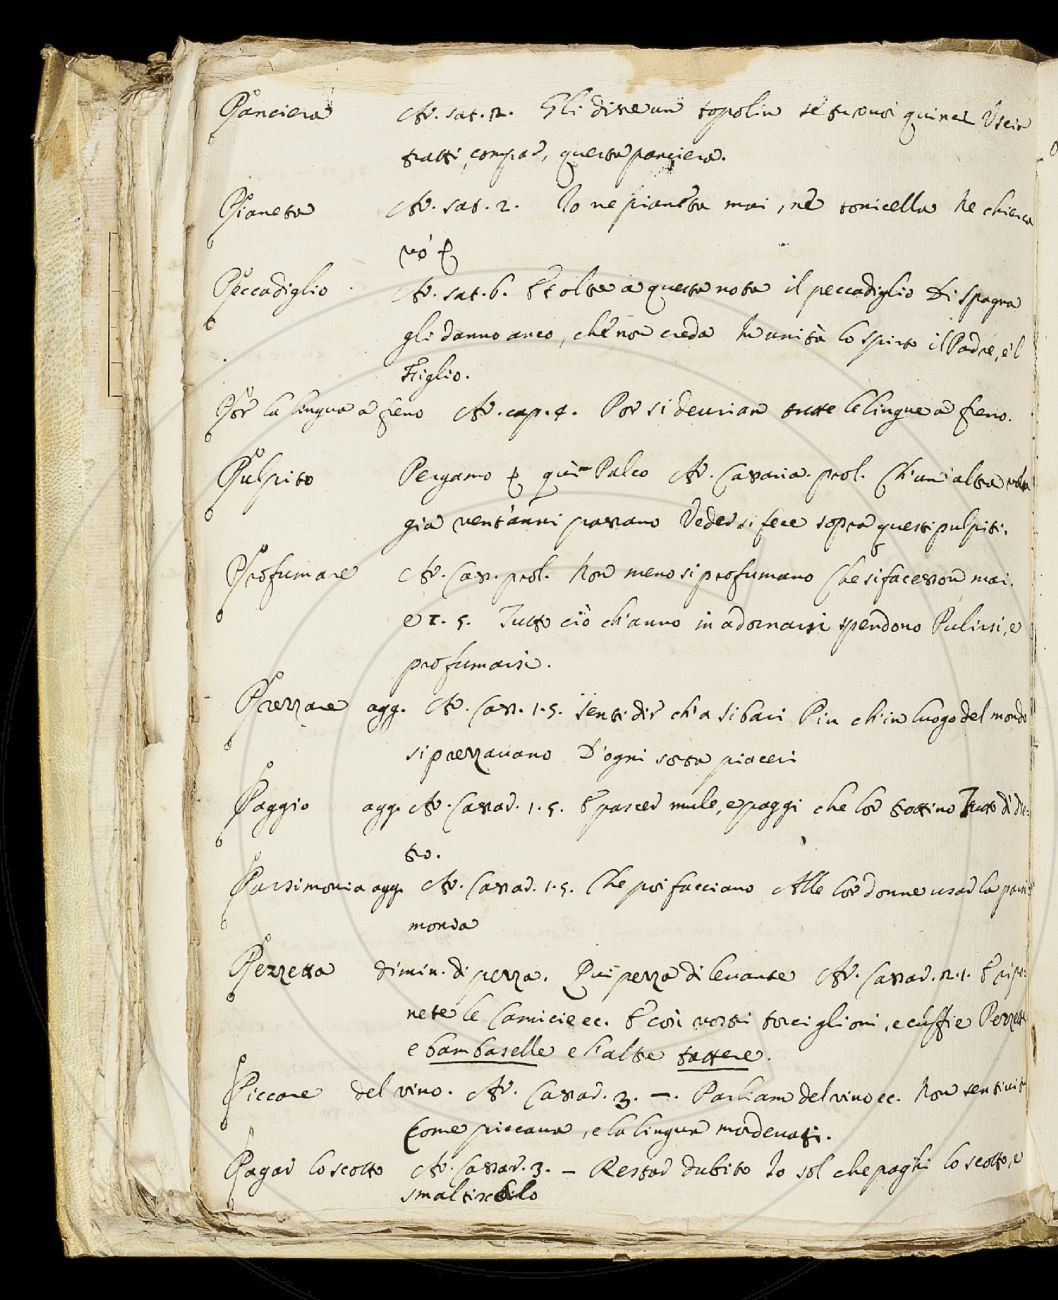 Panciera Ar. sat. 2. Gli disse un topolin se tu vuoi quinci Uscir
tratti, compar, questa panciera.
Pianeta Ar. sat. 2. Io nè pianeta mai, nè tonicella Nè chierca
vò
Peccadiglio Ar. sat. 6. E oltre a questa nota il peccadiglio Di Spagna
gli danno anco, che non creda In unità lo spirto il Padre, e'l
Figlio.
Por la lingua a freno Ar. cap. 4. Por si devrian tutte le lingue a freno.
Pulpito Pergamo qui Palco Ar. Cassaria. prol. Ch'un'altra volta
già vent'anni passano Veder si fece sopra questi pulpiti.
Profumare Ar. Cass. prol. Non meno si profumano Che si facesson mai.
e 1. 5. Tutto ciò ch'anno in adornarsi spendono Pulirsi, e
profumarsi.
Prezzare agg. Ar. Cass. 1. 5. Senti dir ch'a sibari Più ch'in luogo del mondo
si prezzavano D'ogni sorta piaceri
Paggio agg. Ar. Cassar. 1. 5. E pascer mule, e paggi che lor trottino Tutto dì die-
tro.
Parsimonia agg. Ar. Cassar. 1. 5. Che poi facciano Alle lor donne usar la parsi-
monia
Pezzetta dimin. di pezza. Qui pezza di levante Ar. Cassar. 2. 1. E ripo-
nete le Camicie ec. E così vostri torciglioni, e cuffie Pezzette
e bambaselle e l'altre tattere.
Piccare del vino. Ar. Cassar. 3. -. Parliam del vino ec. Non sentivi
Come piccava, e la lingua mordevati.
Pagar lo scotto Ar. Cassar. 3. - Restar dubito Io sol che paghi lo scotto, e
smaltiscilo